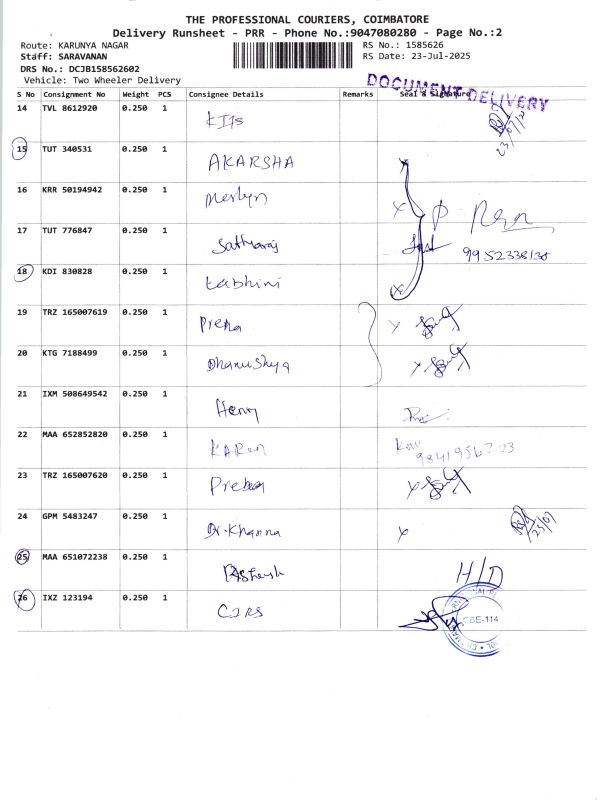 THE PROFESSIONAL COURIERS, COIMBATORE
Delivery Runsheet - PRR - Phone No.:9047080280 - Page No.:2
Route: KARUNYA NAGAR
RS No.: 1585626
Staff: SARAVANAN
RS Date: 23-Jul-2025
DRS No.: DCJB158562602
Vehicle: Two Wheeler Delivery
DOCUMENT DELIVERY
S No Consignment No Weight PCS Consignee Details Remarks Seal & Signature
14 TVL 8612920 0.250 1
23/07/2
15 TUT 340531 0.250 1 AKARSHA
16 KRR 50194942 0.250 1 Merlyn
17 TUT 776847 0.250 1 Sathyaraj
18 KDI 830828 0.250 1
19 TRZ 165007619 0.250 1 Prema
20 KTG 7188499 0.250 1 Dhanushya
21 IXM 508649542 0.250 1 Henry
22 MAA 652852820 0.250 1 KAREN
23 TRZ 165007620 0.250 1
24 GPM 5483247 0.250 1 Dr. Khanna
25 MAA 651072238 0.250 1 H/D
26 IXZ 123194 0.250 1 CARS
CBE-114